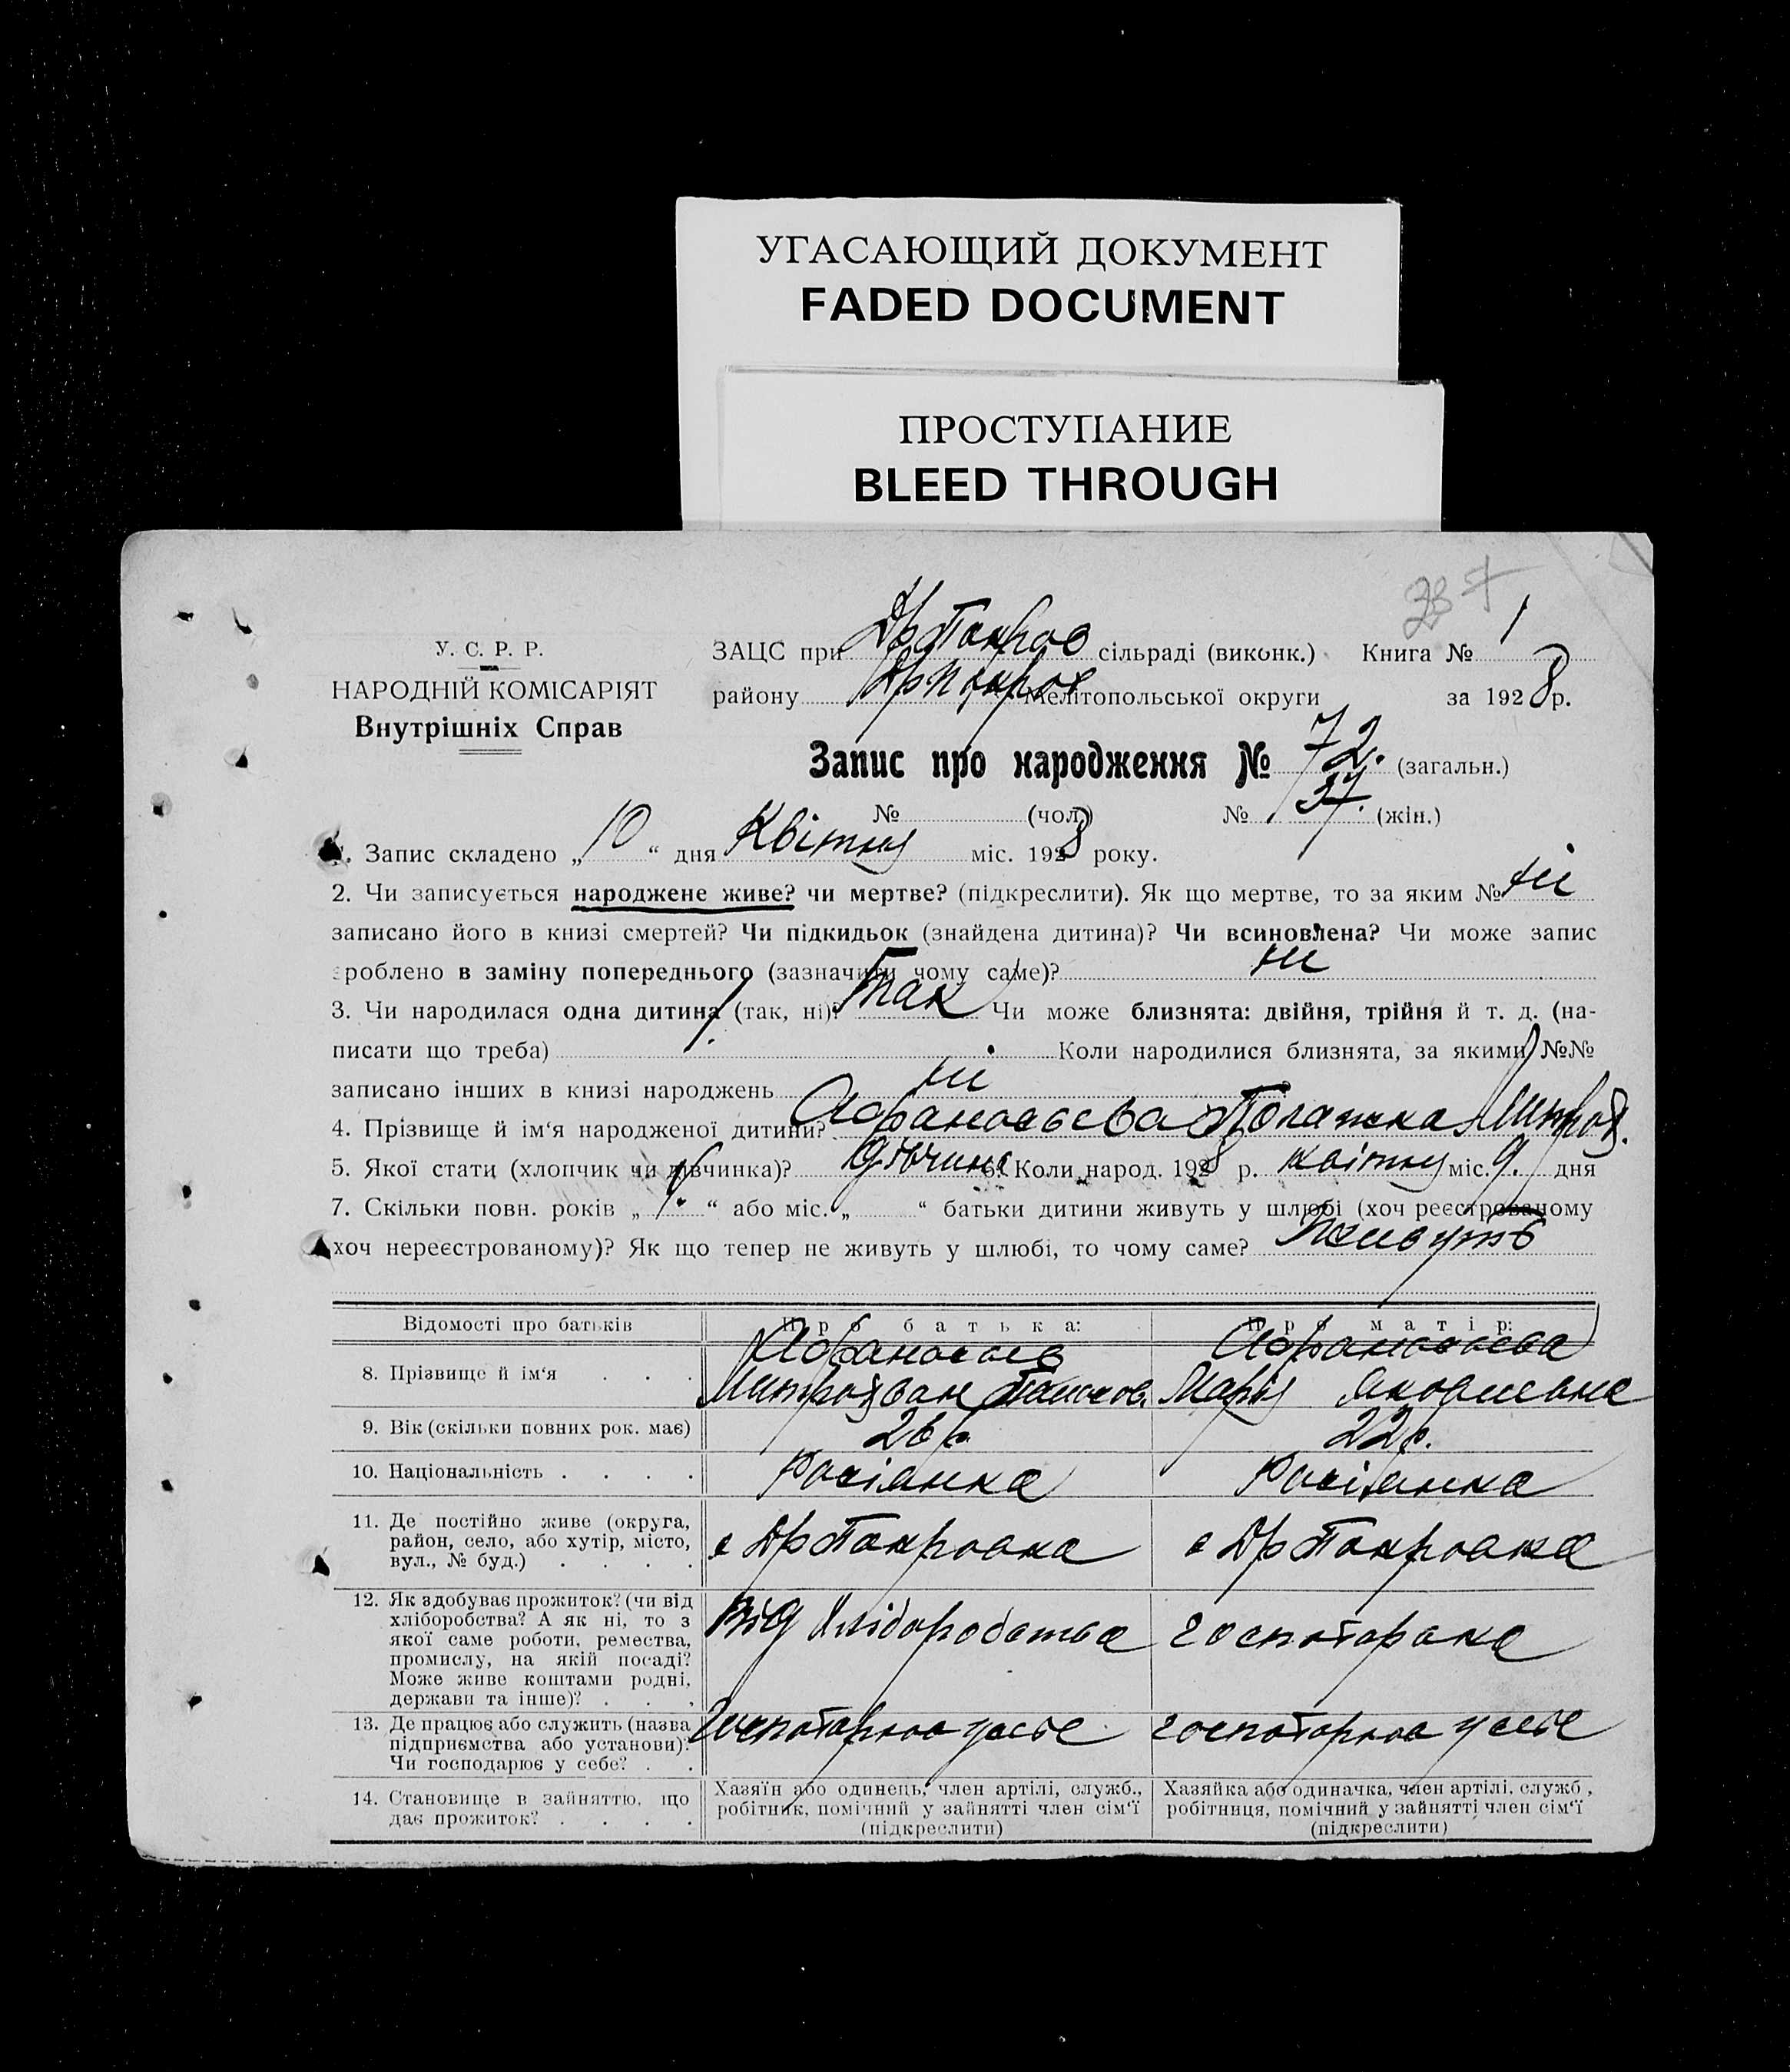 УГАСАЮЩИЙ ДОКУМЕНТ
FADED DOCUMENT
ПРОСТУПАНИЕ
BLEED THROUGH
У. С. Р. Р.
НАРОДНІЙ КОМІСАРІЯТ
Внутрішніх Справ
ЗАЦС при Др Покров сільраді (виконк.) Книга № 1
району Др Покров Мелітопольської округи за 1928 р.
Запис про народження № 72. (загальн.)
№ (чол.) № 37. (жін.)
1. Запис складено „10“ дня Квітня міс. 1928 року.
2. Чи записується народжене живе? чи мертве? (підкреслити). Як що мертве, то за яким № ні
записано його в книзі смертей? Чи підкидьок (знайдена дитина)? Чи всиновлена? Чи може запис
зроблено в заміну попереднього (зазначити чому саме)? ні
3. Чи народилася одна дитина (так, ні)? Так Чи може близнята: двійня, трійня й т. д. (на-
писати що треба) Коли народилися близнята, за якими №№
записано інших в книзі народжень ні
4. Прізвище й ім‘я народженої дитини? Афанасьєва
5. Якої стати (хлопчик чи дівчинка)? дівчина 6. Коли народ. 1928 р. квітня міс. 9. дня
7. Скільки повн. років „ “ або міс. „ “ батьки дитини живуть у шлюбі (хоч реєстрованому
хоч нереєстрованому)? Як що тепер не живуть у шлюбі, то чому саме? Живуть
Відомості про батьків Про батька: Про матір:
8. Прізвище й ім‘я Афанасьев Афанасьєва
Митрофан Марія Яковлевна
9. Вік (скільки повних рок. має) 26 р. 22 р.
10. Національність Росіянка Росіянка
11. Де постійно живе (округа,
район, село, або хутір, місто,
вул., № буд.) с Др Покровка с Др Покровка
12. Як здобуває прожиток? (чи від
хліборобства? А як ні, то з
якої саме роботи, ремества,
промислу, на якій посаді?
Може живе коштами родні,
держави та інше)? Від Хліборобства госпотарка
13. Де працює або служить (назва
підприємства або установи)?
Чи господарює у себе? госпотарює у себе госпотарює у себе
14. Становище в зайняттю, що
дає прожиток?
Хазяїн або одинець, член артілі, служб.,
робітник, помічний у зайнятті член сім‘ї
(підкреслити)
Хазяйка або одиначка, член артілі, служб.,
робітниця, помічний у зайнятті член сім‘ї
(підкреслити)